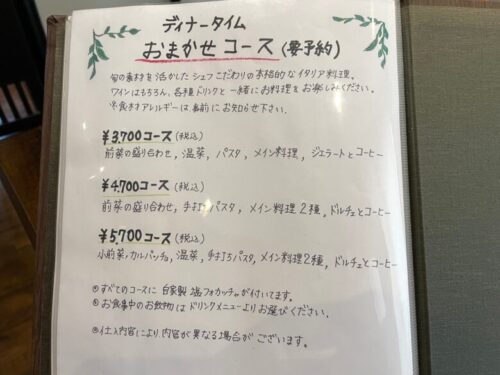 ディナータイム
おまかせコース(要予約)
旬の素材を活かしたシェフこだわりの本格的なイタリア料理。
ワインはもちろん、各種ドリンクと一緒にお料理をお楽しみください。
※食材アレルギーは事前にお知らせ下さい。
¥3,700コース(税込)
前菜の盛り合わせ, 温菜, パスタ, メイン料理, ジェラートとコーヒー
¥4,700コース(税込)
前菜の盛り合わせ, 手打ちパスタ, メイン料理2種, ドルチェとコーヒー
¥5,700コース(税込)
小前菜, カルパッチョ, 温菜, 手打ちパスタ, メイン料理2種, ドルチェとコーヒー
すべてのコースに自家製塩フォカッチャが付いてます。
お食事中のお飲物はドリンクメニューよりお選びください。
仕入内容により内容が異なる場合がございます。